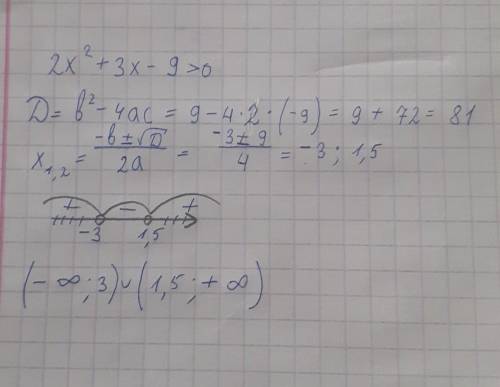 2x² + 3x - 9 > 0
D = b² - 4ac = 9 - 4·2·(-9) = 9 + 72 = 81
x₁,₂ = (-b ± √D)/2a = (-3 ± 9)/4 = -3 ; 1,5
+ - +
-3 1,5
(-∞; 3) ∪ (1,5; +∞)